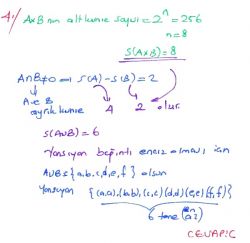 4-) AxB nin alt küme sayısı = 2ⁿ = 256
n = 8
s(AxB) = 8
A∩B≠0 ⇒ s(A) - s(B) = 2
A ve B 4 2 olur.
ayrık küme
s(AUB) = 6
Yansıyan bağıntı en az olması için
AUB = {a,b,c,d,e,f} olsun
Yansıyan {(a,a),(b,b),(c,c)(d,d)(e,e)(f,f)}
6 tane
CEVAP: C